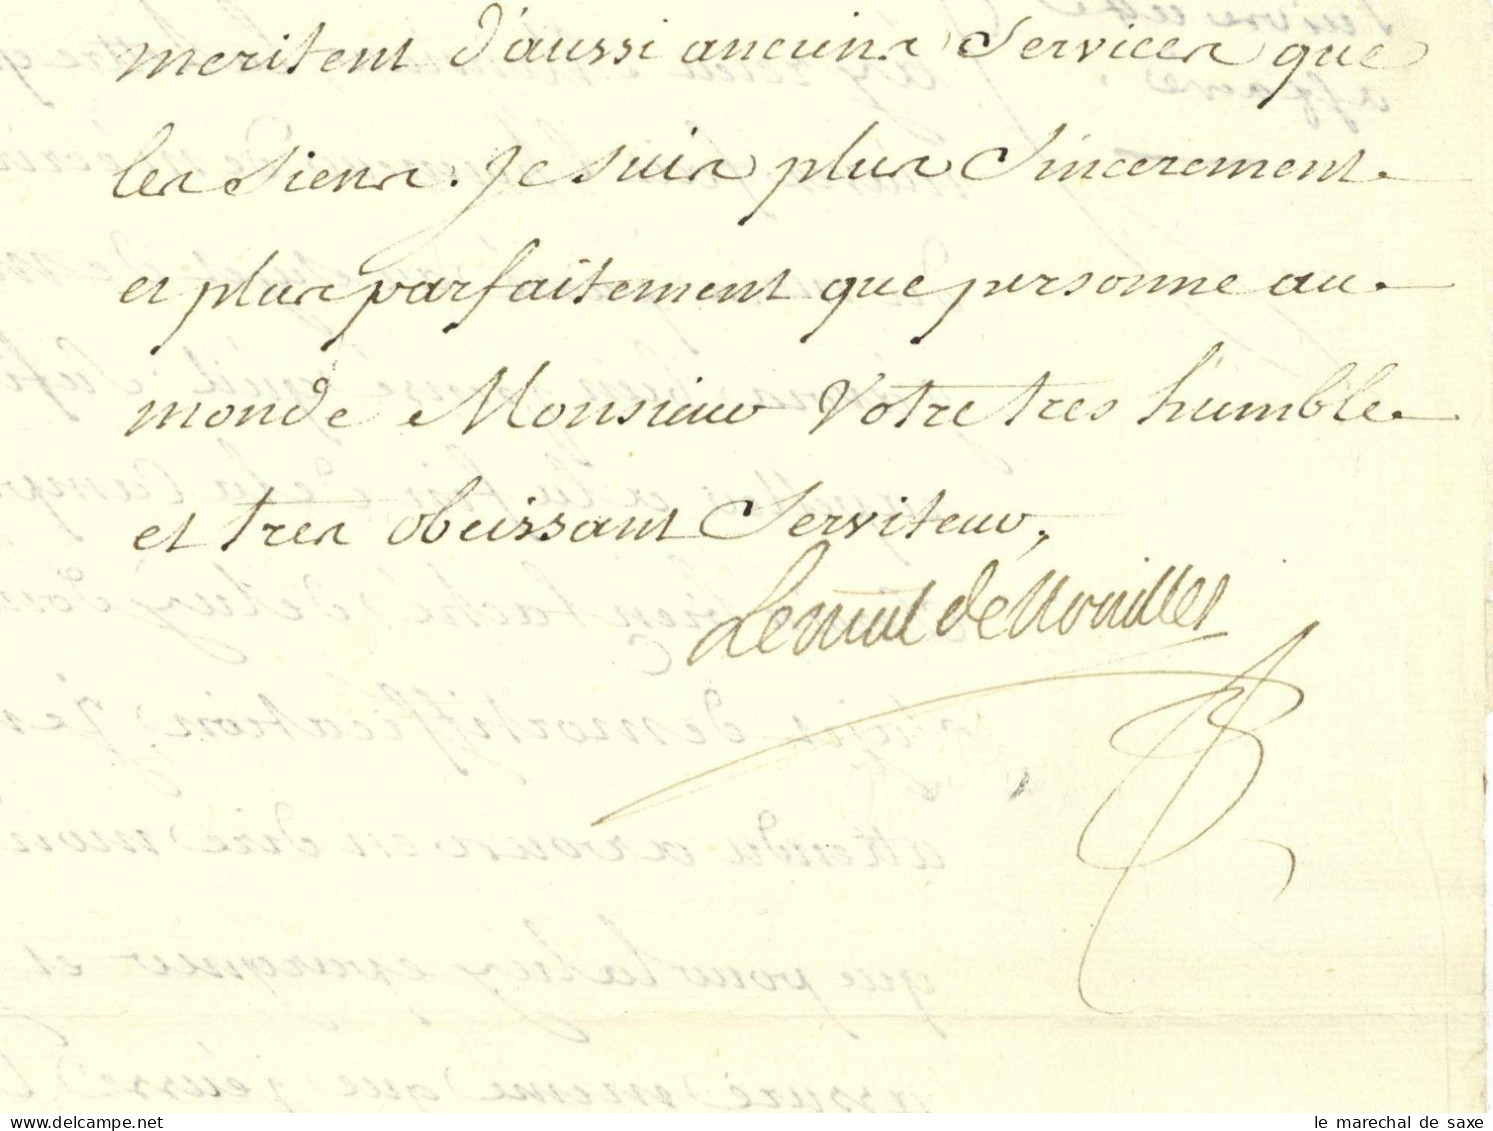 meritent d'aussi anciens Services que
les Siens. Je suis plus Sincerement
et plus parfaitement que personne au
monde Monsieur Votre tres humble
et tres obeissant Serviteur,
Le mal de Noailles
le marechal de saxe